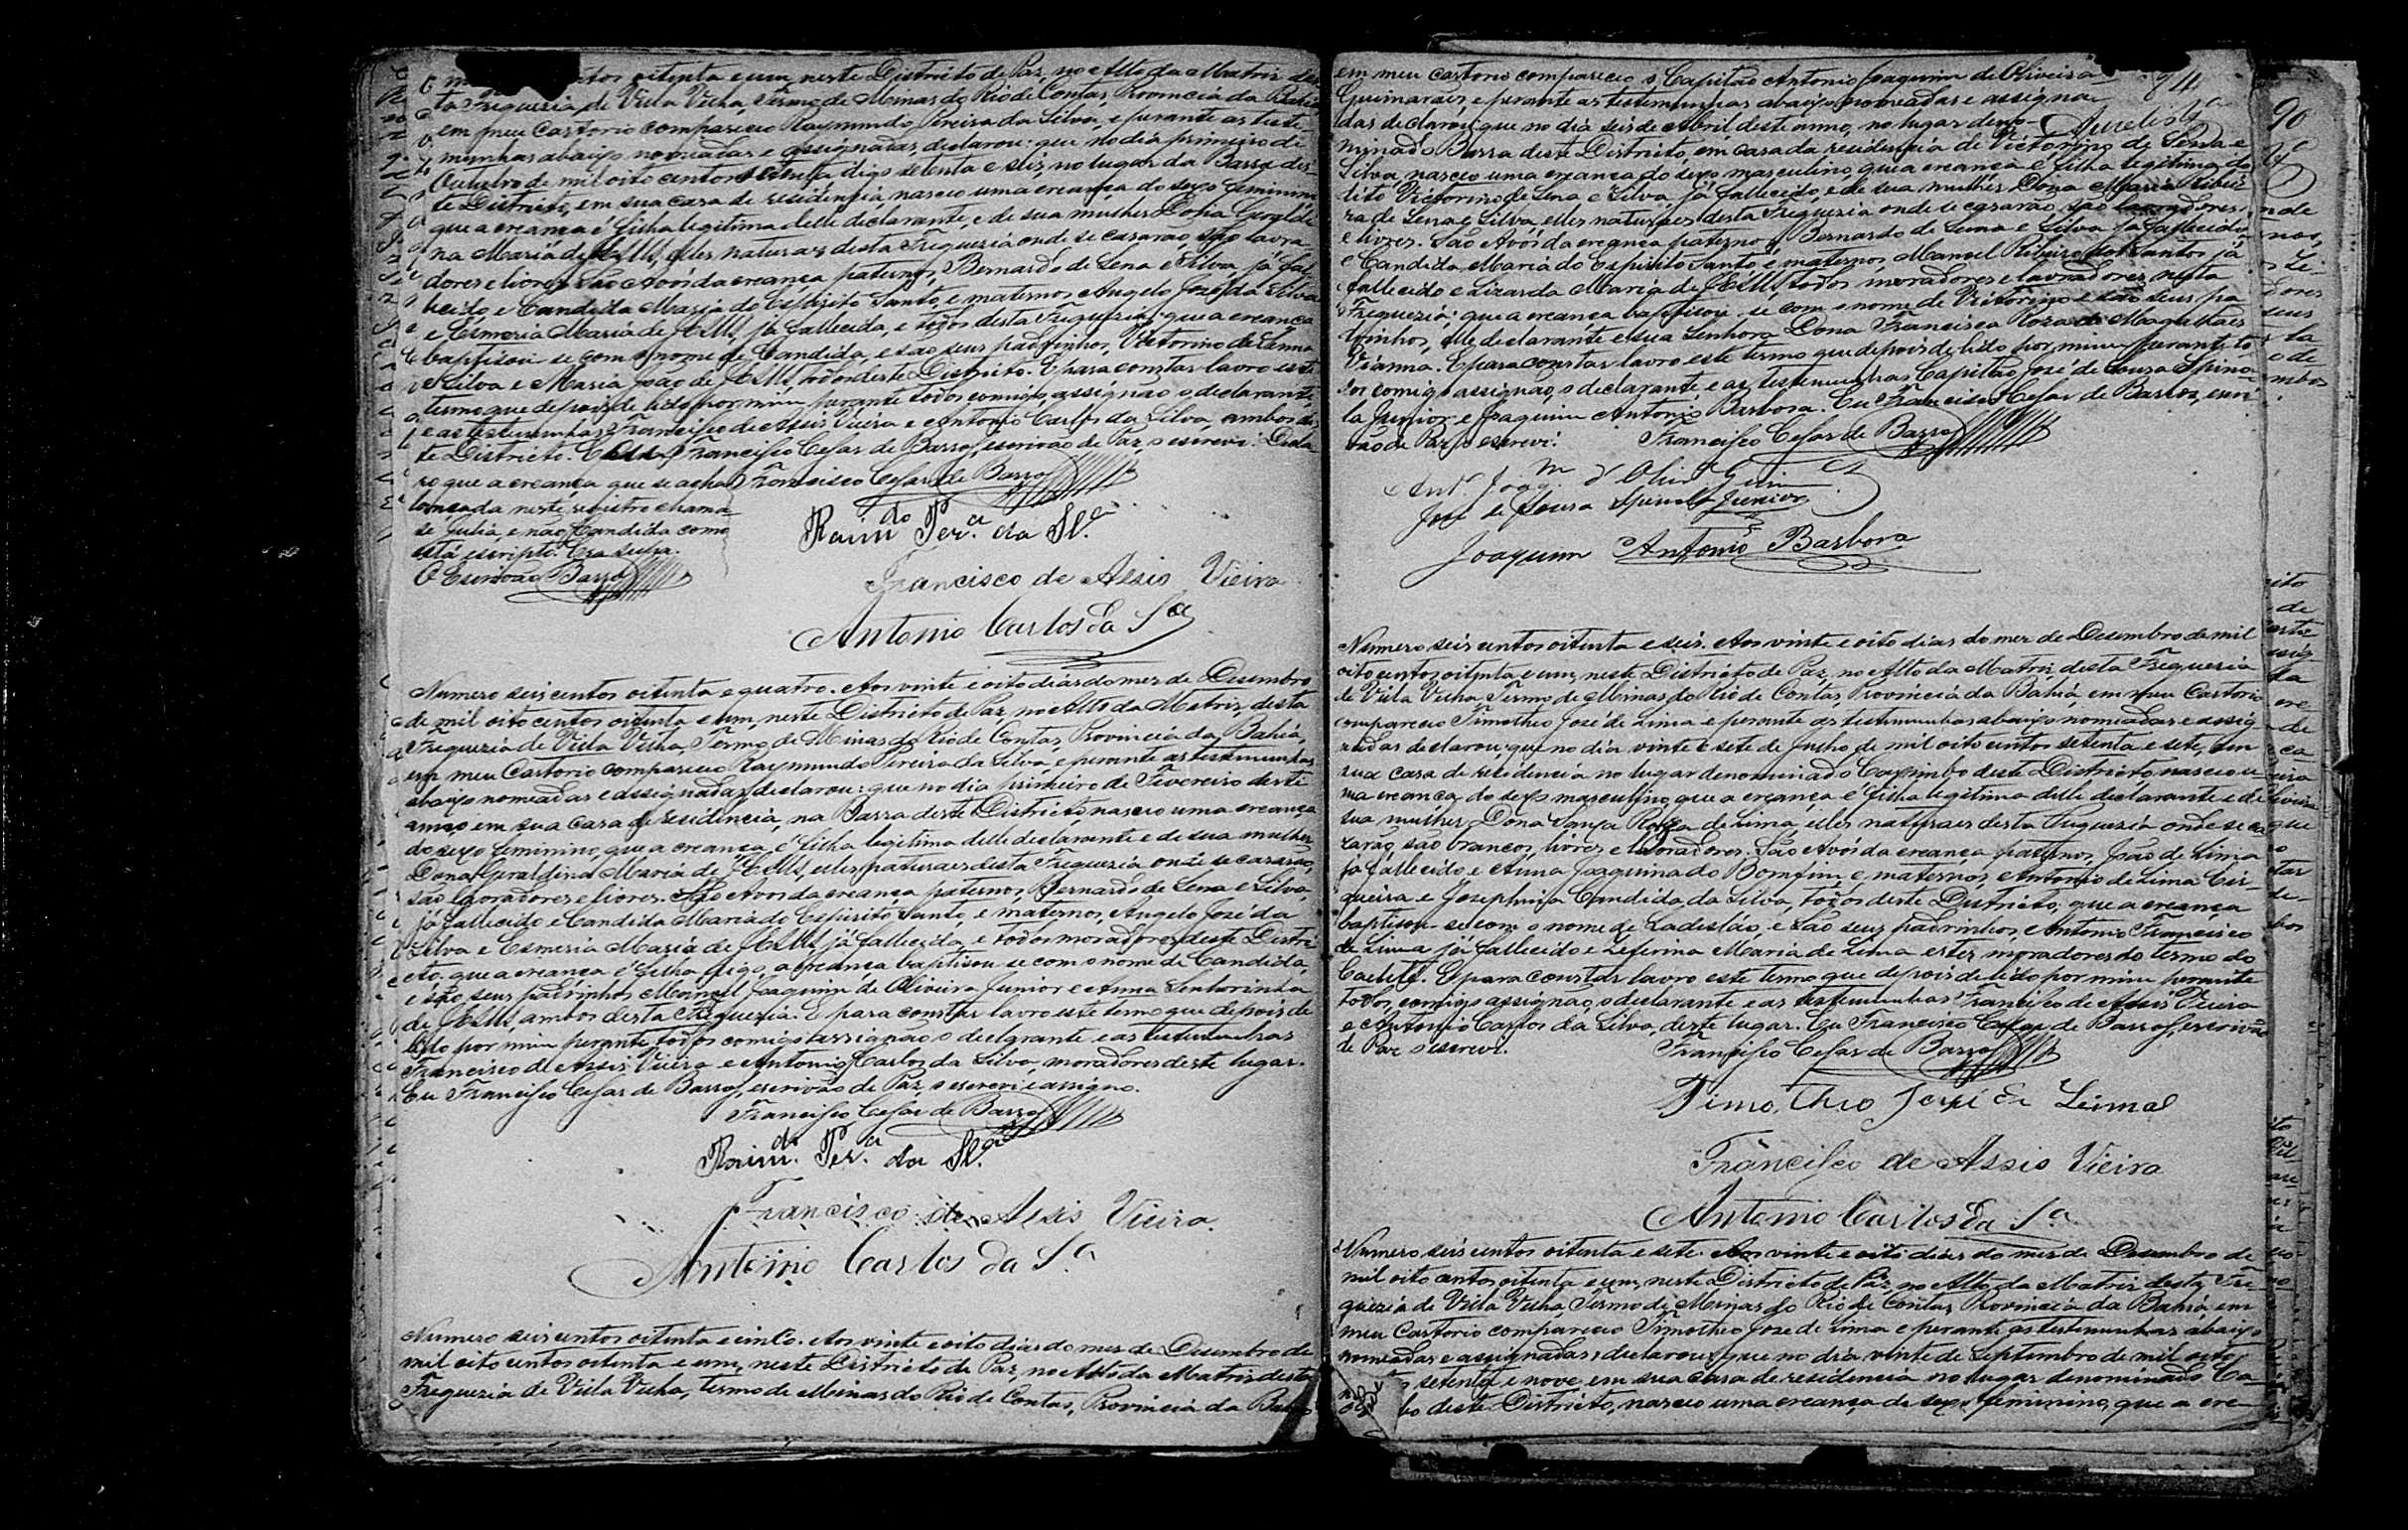 oitenta e um, neste Districto de Paz, no Alto da Matriz des-
ta Freguezia de Villa Velha, Termo de Minas do Rio de Contas, Provincia da Bahia
em meu Cartorio compareceo Raymundo Pereira da Silva, e perante as teste-
munhas abaixo nomeadas e assignadas, declarou: que no dia primeiro de
Outubro de mil oito centos setenta digo setenta e seis, no lugar da Barra des-
te Districto, em sua casa de residencia, nasceo uma creança do sexo feminino
que a creança é filha legitima delle declarante, e de sua mulher Dona Geraldi-
na Maria de Jesus, elles naturaes desta Freguezia onde se casarão, são lavra-
dores e livres. São Avós da creança paternos, Bernardo de Sena e Silva, já fal-
lecido e Candida Maria do Espirito Santo, e maternos Angelo José da Silva
e Esmeria Maria de Jesus, já fallecida, e todos desta Freguezia: que a creança
baptisou-se com o nome de Candida, e são seus padrinhos, Victorino de Senna
e Silva e Maria João de Jesus, todos deste Districto. E para constar lavro este
termo que depois de lido por mim perante todos comigo assignão o declarante
e as testemunhas Francisco de Assis Vieira e Antonio Carlos da Silva, ambos des-
te Districto. Eu Francisco Cesar de Barros, escrivão de Paz, o escrevi. Decla-
ro que a creança que se acha Francisco Cesar de Barros
lançada neste registro chama-
se Julia, e não Candida como
está escripto. Era supra.
O Escrivão Barros
Raimdo Pera. da Sla.
Francisco de Assis Vieira
Antonio Carlos da Sa
Numero seis centos oitenta e quatro. Aos vinte e oito dias do mez de Desembro
de mil oito centos oitenta e um, neste Districto de Paz, no Alto da Matriz, desta
Freguezia de Villa Velha, Termo de Minas do Rio de Contas, Provincia da Bahia,
em meu Cartorio compareceo Raymundo Pereira da Silva, e perante as testemunhas
abaixo nomeadas e assignadas, declarou: que no dia primeiro de Fevereiro deste
anno em sua casa de residencia, na Barra deste Districto nasceo uma creança
do sexo feminino, que a creança é filha legitima delle declarante e de sua mulher
Dona Geraldina Maria de Jesus, elles naturaes desta Freguezia onde se casarão,
são lavradores e livres. São Avós da creança, paternos, Bernardo de Sena e Silva,
já fallecido e Candida Maria do Espirito Santo, e maternos, Angelo José da
Silva e Esmeria Maria de Jesus, já fallecida, e todos moradores deste Distri-
cto. que a creança é filha digo, a creança baptisou-se com o nome de Candida,
e são seus padrinhos Manoel Joaquim de Oliveira Junior e Anna Senhorinha
de Jesus, ambos desta Freguezia. E para constar lavro este termo que depois de
lido por mim perante todos comigo assignão o declarante e as testemunhas
Francisco de Assis Vieira e Antonio Carlos da Silva, moradores deste lugar.
Eu Francisco Cesar de Barros, escrivão de Paz, o escrevi e assigno.
Francisco Cesar de Barros
Raimdo. Pera. da Sla.
Francisco de Assis Vieira
Antonio Carlos da Sa.
Numero seis centos oitenta e cinco. Aos vinte e oito dias do mez de Desembro de
mil oito centos oitenta e um, neste Districto de Paz, no Alto da Matriz desta
Freguezia de Villa Velha, termo de Minas do Rio de Contas, Provincia da Bahia
em meu Cartorio compareceo o Capitão Antonio Joaquim de Oliveira
Guimarães, e perante as testemunhas abaixo nomeadas e assigna-
das declarou: que no dia seis de Abril deste anno, no lugar deno-
minado Barra deste Districto, em casa da residencia de Victorino de Senna e
Silva, nasceo uma creança do sexo masculino, que a creança é filha legitima do
dito Victorino de Sena e Silva, já fallecido, e de sua mulher Dona Maria Ribei-
ra de Sena e Silva, elles naturaes desta Freguezia onde se casarão, são lavradores
e livres. São Avós da creança paternos Bernardo de Senna e Silva já fallecido
e Candida Maria do Espirito Santo, e maternos, Manoel Ribeiro dos Santos já
fallecido e Lizarda Maria de Jesus, todos moradores e lavradores nesta
Freguezia: que a creança baptisou-se com o nome de Victorino e são seus pa-
drinhos, elle declarante e sua Senhora Dona Francisca Roza de Magalhães
Vianna. E para constar lavro este termo que depois de lido por mim perante to-
dos comigo assignão, o declarante, e as testemunhas Capitão José de Souza Spino-
la Junior e Joaquim Antonio Barbosa. Eu Francisco Cesar de Barros, escri-
vão de Paz, o escrevi.
Francisco Cesar de Barros
Ant. Joaqm d'Olivra Guim
José de Souza Spinola Junior
Joaquim Antonio Barbosa
Numero seis centos oitenta e seis. Aos vinte e oito dias do mez de Desembro de mil
oito centos oitenta e um, neste Districto de Paz, no Alto da Matriz, desta Freguezia
de Villa Velha, Termo de Minas do Rio de Contas, Provincia da Bahia, em meu Cartorio
compareceo Timotheo José de Lima e perante as testemunhas abaixo nomeadas e assig-
nadas declarou: que no dia vinte e sete de Julho de mil oito centos setenta e sete, em
sua casa de residencia no lugar denominado Caximbo deste Districto nasceo u-
ma creança do sexo masculino, que a creança é filha legitima delle declarante e de
sua mulher Dona Roza de Lima, elles naturaes desta Freguezia onde se ca-
zarão, são brancos, livres e lavradores. São Avós da creança paternos, João de Lima
já fallecido e Anna Joaquina do Bomfim, e maternos, Antonio de Lima Cir-
queira e Josephina Candida da Silva, todos deste Districto; que a creança
baptisou-se com o nome de Ladislão, e são seus padrinhos, Antonio Francisco
de Lima já fallecido e Zeferina Maria de Lima estes moradores do termo do
Caitité. E para constar lavro este termo que depois de lido por mim perante
todos, comigo assignão, o declarante e as testemunhas Francisco de Assis Vieira
e Antonio Carlos da Silva, deste lugar. Eu Francisco Cesar de Barros, escrivão
de Paz o escrevi.
Francisco Cesar de Barros
Timotheo José de Leima
Francisco de Assis Vieira
Antonio Carlos da Sa.
Numero seis centos oitenta e sete. Aos vinte e oito dias do mez de Desembro de
mil oito centos oitenta e um, neste Districto de Paz, no Alto da Matriz desta Fre-
guezia de Villa Velha, Termo de Minas do Rio de Contas, Provincia da Bahia em
meu Cartorio compareceo Timotheo Jose de Lima e perante as testemunhas abaixo
nomeadas e assignadas, declarou: que no dia vinte de Septembro de mil oito
setenta e nove, em sua casa de residencia no lugar denominado Ca-
bo deste Districto, nasceo uma creança de sexo feminino, que a cre-
90